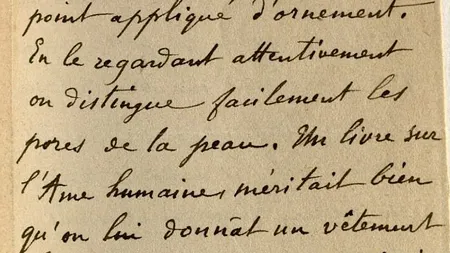 point appliqué d'ornement.
En le regardant attentivement
on distingue facilement les
pores de la peau. Un livre sur
l'Ame humaine, méritait bien
qu'on lui donnât un vêtement